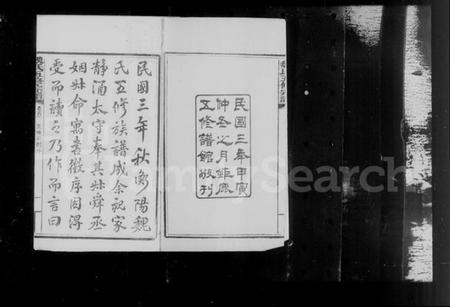 民國三年甲寅
仲冬之月鉅鹿
五修譜館敬刊
民國三年秋衡陽魏
氏五修族譜成余記家
靜涵太守奉其
姻 命寓書徵序因得
受而讀之乃作而言曰
FamilySearch